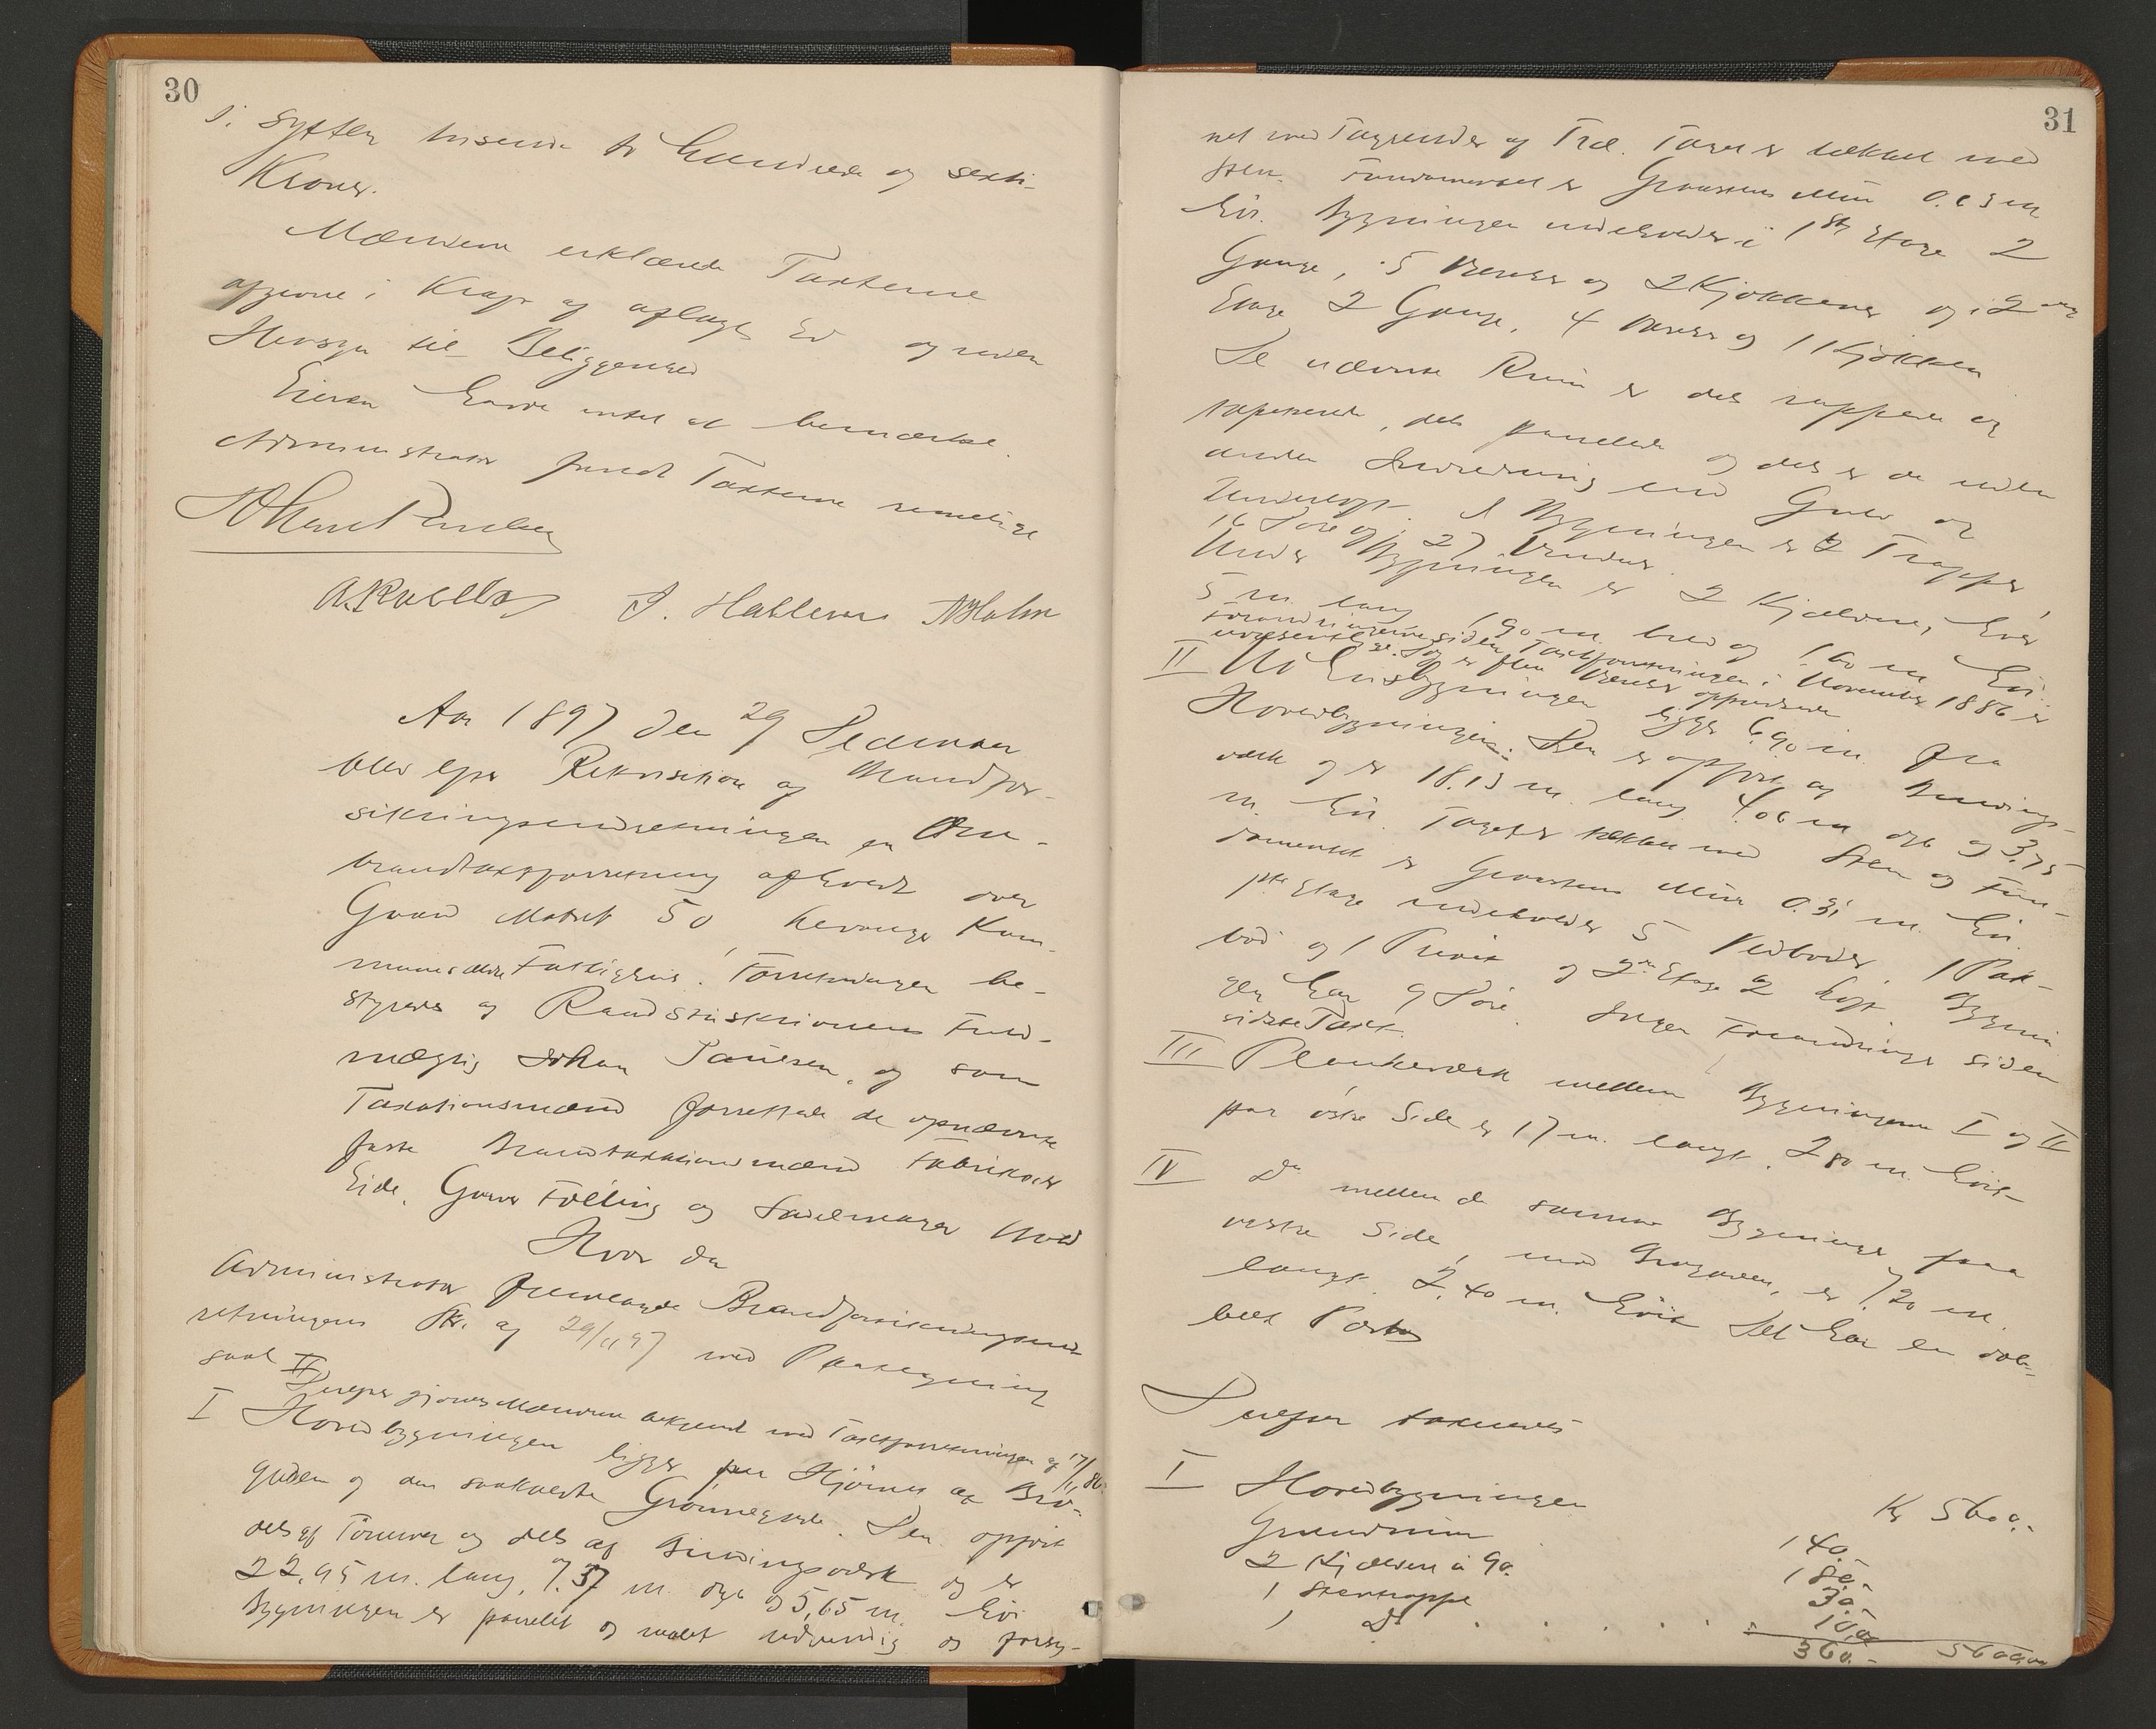 30
i: sytten tusende to hundrede og sexti
Kroner.
Mændene erklærede Taxterne
afgivne i Kraft af aflagt Ed og uden
Hensyn til Beliggenhed
Eieren havde intet at bemærke.
Administrator fandt Taxterne rimelige
A. J. Hablever A Holm
Aar 1897 den 29 December
blev efter Rekvisition af Brandfor-
sikringsindretningen en Om-
brandtaxtforretning afholdt over
Gaard Matrik 50 Levanger Kom-
munes Fattighus. Forretningen be-
styredes af Raadstuskriverens Fuld-
mægtig Johan Paulsen, og som
Taxationsmænd forrettede de opnævnte
faste Brandtaxationsmænd Fabrikør
Eide, Garver Følling og Sadelmager
Hvor da
Administrator fremlagde Brandforsikringsind-
retningens Skr. af 29/11 97 med Paategning
saal.
Derefter gjordes Mændene bekjendt med Taxtforretningen af 17/11 86.
I Hovedbygningen ligger paa Hjørnet af Bro-
gaden og den saakaldte Grønnegade. Den opført
dels af Tømmer og dels af Bindingsværk og er
22,95 m. lang, 7.37 m dyb og 5,65 m. høi
Bygningen er panelet og malet udvendig og forsy-
31
net med Tagrender af Træ. Taget er tækket med
Sten. Fundamentet er Graastens Mur 0.63 m
høi. Bygningen indeholder i 1ste Etage 2
Gange, 5 Værelser og 2 Kjøkkener og i 2den
Etage 2 Gange, 4 Værelser og 1 Kjøkken
De nævnte Rum er dels rappede og
tapetserede, dels panelede og dels er de uden
anden Indredning end Gulv og
Underloft. I Bygningen er 2 Trapper,
16 Døre og 27 Vinduer.
Under Bygningen er 2 Kjældere, hver
5 m. lang 1.90 m. bred og 1.60 m høi.
Forandringerne siden Taxtforretningen i November 1886 er
uvæsentlige. Dog er flere Værelser oppudsede
II Udhusbygningen ligger 6.90 m. fra
Hovedbygningen. Den er opført af Bindings-
værk og er 18.13 m. lang 4.06 m dyb og 3.75
m. høi. Taget er tækket med Sten og Fun-
damentet er Graastens Mur 0.31 m. høi.
1ste Etage indeholder 5 Vedboder, 1 Pak-
bod og 1 Privet og 2den Etage 2 Loft. Bygnin-
gen har 9 Døre. Ingen Forandringer siden
sidste Taxt.
III Plankeværk mellem Bygningerne I og II
paa østre Side er 17 m. langt, 2.80 m. høit
IV Do mellem de samme Bygninger paa
vestre Side, mod Brogaden, er 7.20 m.
langt, 2.40 m. høit Det har en dob-
belt Port
Derefter taxeredes
I Hovedbygningen Kr 5600.-
Grundmur 140.-
2 Kjældere à 90. 180.-
1 Stentrappe 30.-
1 Do . . . . . . 10,00
360.- 5600,00